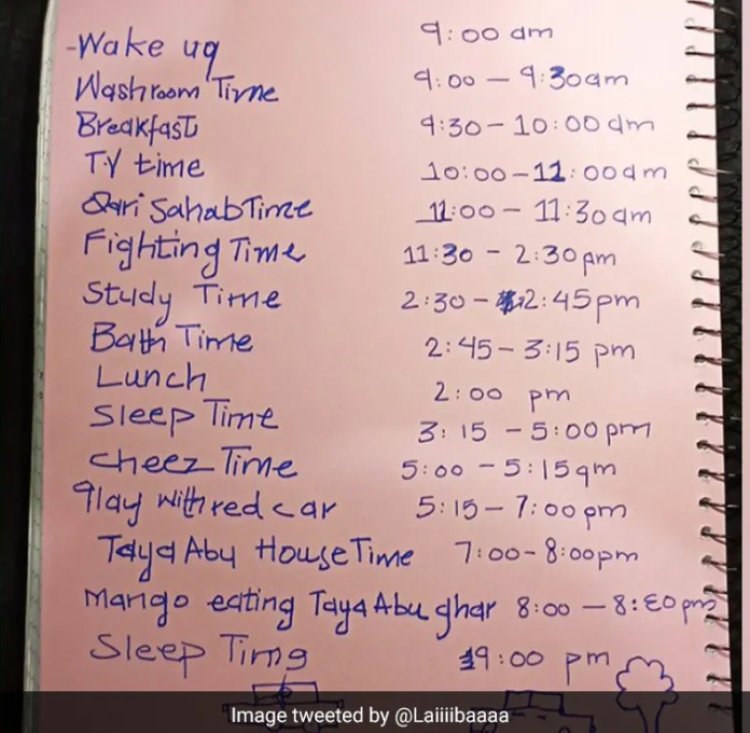 -Wake uq 9:00 am
Washroom Time 9:00 - 9:30am
Breakfast 9:30 - 10:00 am
T.V time 10:00 - 11:00am
Qari Sahab Time 11:00 - 11:30am
Fighting Time 11:30 - 2:30pm
Study Time 2:30 - 2:45pm
Bath Time 2:45 - 3:15 pm
Lunch 2:00 pm
Sleep Time 3:15 - 5:00pm
Cheez Time 5:00 - 5:15qm
qlay with red car 5:15 - 7:00pm
Taya Abu House Time 7:00 - 8:00pm
Mango eating Taya Abu ghar 8:00 - 8:30pm
Sleep Timg 9:00 pm
Image tweeted by @Laiiiibaaaa